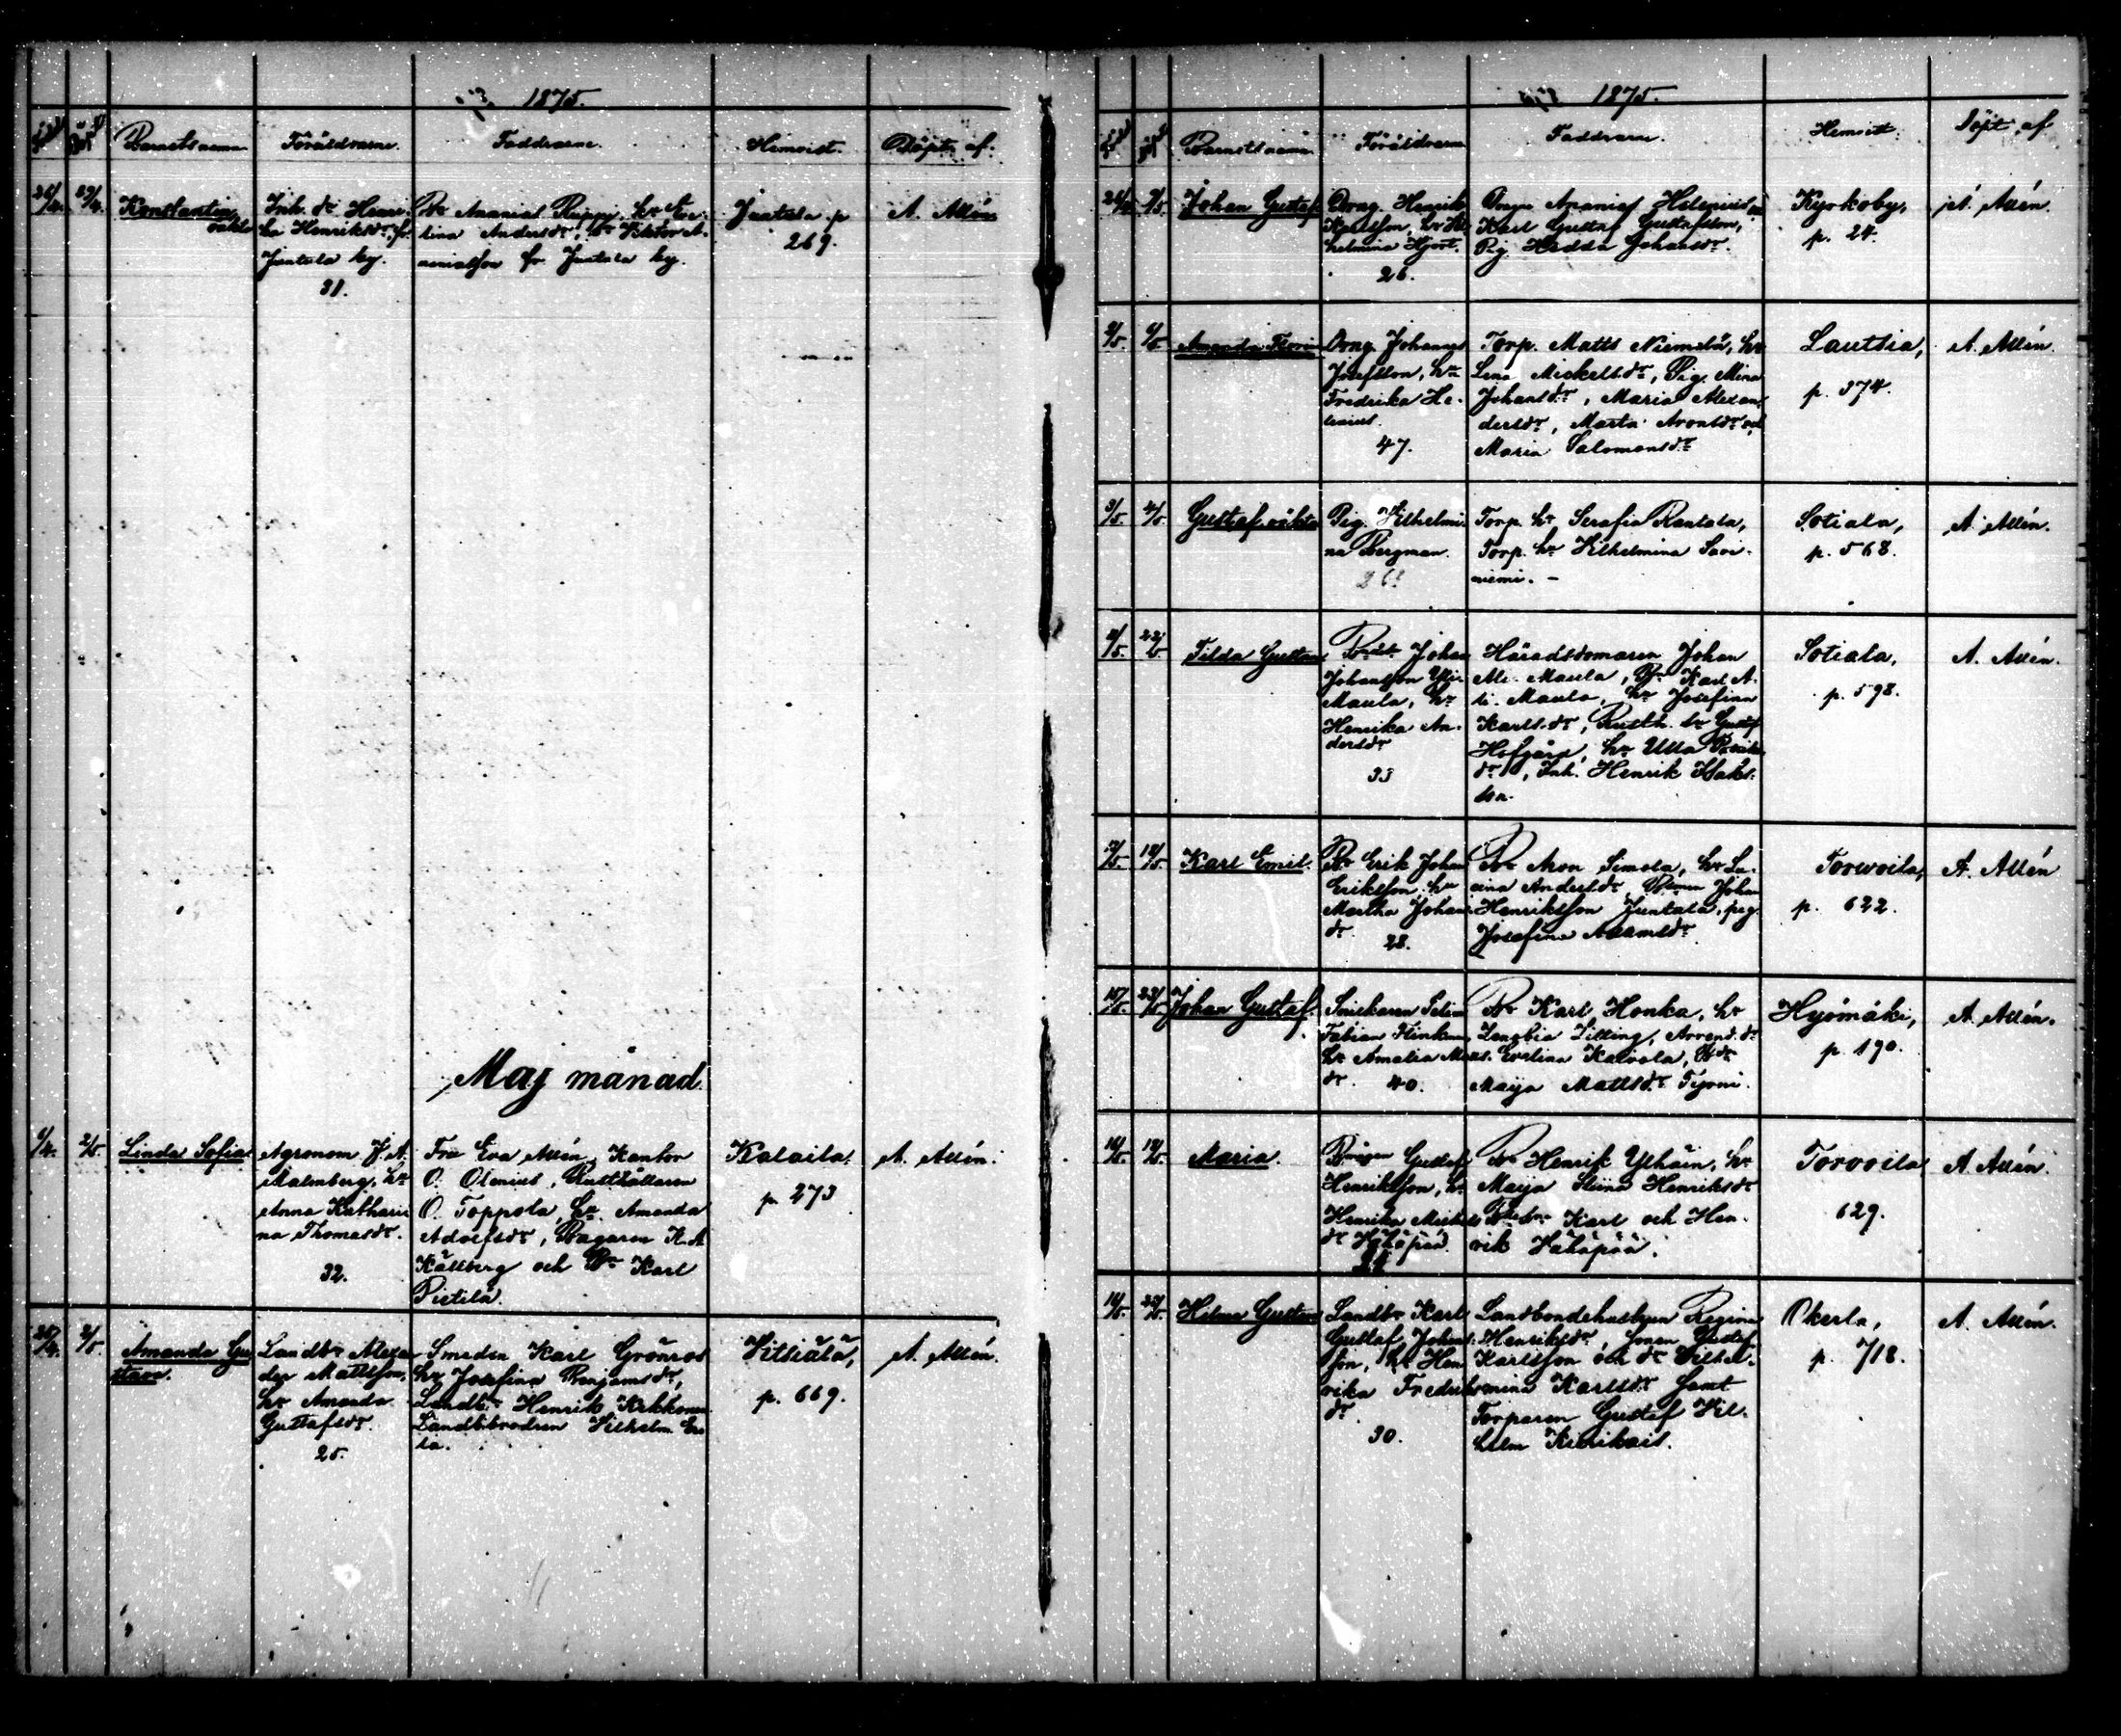 1875.
Barnets namn Föräldrarne. Faddrarne. Hemvist. Döpt af.
26/4. 29/4. Konstantin
oäkta
Inh. dr Henri-
ka Henriksdr. fr.
Juntula by.
31.
Br Ananias Ruppi, hr
tina Andersdr, Viktor A-
naniasson fr Juntula by.
Juntula p
269.
A. Allén
Maj månad
1/4. 2/5. Linda Sofia
Agronom J. A.
Malmberg, hr
Anna Kathari-
na Thomasdr.
32.
Fru Eva Allén, Kantor
O. Olenius, Rusthållaren
O. Toppola, hr Amanda
Adolfsdr, Bagaren K. A
Källberg och Br Karl
Pietilä.
Kalaila.
p. 273
A. Allén.
2/5. Amanda Gu
stava.
Landbr Alexan
der Mattsson,
hr Amanda
Gustafsdr.
25.
Smeden Karl Grönros
hr Josefina Benjamsdr,
Landbr Henrik Kekkonen
Landbbrodren Vilhelm Ero
la.
Vitsiälä,
p. 669.
A. Allén.
1875.
Barnets namn Föräldrarne Faddrarne. Hemvist. Döpt af.
26/4 9/5. Johan Gustaf
Dräng Henrik
Karlsson, hr Vil
helmina Hjort.
26.
Dräng Ananias Helenius,
Karl Gustaf Gustafsson,
Pig Hedda Johansdr.
Kyrkoby,
p. 24.
A. Allén.
2/5. 6/5. Amanda
Dräng Johannes
Josefsson, hr
Fredrika He-
lenius.
47.
Torp. Matts Niemelä, hr
Lena Mickelsdr, Pig. Mina
Johansdr, Maria Alexan-
dersdr, Marta Aronsdr och
Maria Salomonsdr
Lautsia,
p. 374.
A. Allén.
3/5. 4/5. Gustaf oäkta
Pig. Vilhelmi-
na Bergman.
Torp. hr Serafia Rantala,
Torp. hr Vilhelmina Savi-
niemi. -
Sotiala,
p. 568.
A. Allén.
23/5. Tilda Gustava
Johan
Johansson Yli-
Maula, hr
Henrika An-
dersdr
33
Häradsdomaren Johan
Ali-Maula, Br Karl A-
li-Maula, hr Josefina
Karlsdr, Gustaf
hr Ulla
dr, Inh. Henrik
Sotiala,
p. 598.
A. Allén.
18/5 Karl Emil.
Br Erik Johan
Eriksson, hr
Martha Johans
dr.
28.
Br Aron Simola, hr Lo-
visa Andersdr, Johan
Henriksson Juntala, pig
Josefina Adamsdr.
Torvoila,
p. 622.
A. Allén
23/5 Johan Gustaf.
Fabian
hr Amalia Matts
dr. 40.
Br Karl Honka, hr
Zenobia Zitting, Arrend. dr
Evelina Kaivola, Bdr
Maija Mattsdr Tijoni.
Hyömäki,
p. 190.
A. Allén.
16/5. 19/5. Maria.
Gustaf
Henriksson, hr
Henrika Mickels
dr Hähäpää.
Br Henrik Ylhäin, hr
Maija Stiina Henriksdr
Karl och Hen-
rik Hähäpää.
Torvoila
629.
A. Allén.
16/5. 23/5. Hilma Gustava
Landbr Karl
Gustaf Johans
son, hr Hen
rika Fredriks
dr.
30.
Landbondehustrun Regina
Henriksdr, sonen Gustaf
Karlsson och dr Vilhel-
mina Karlsdr samt
Torparen Gustaf Vil-
helm
Okerla,
p. 718.
A. Allén.